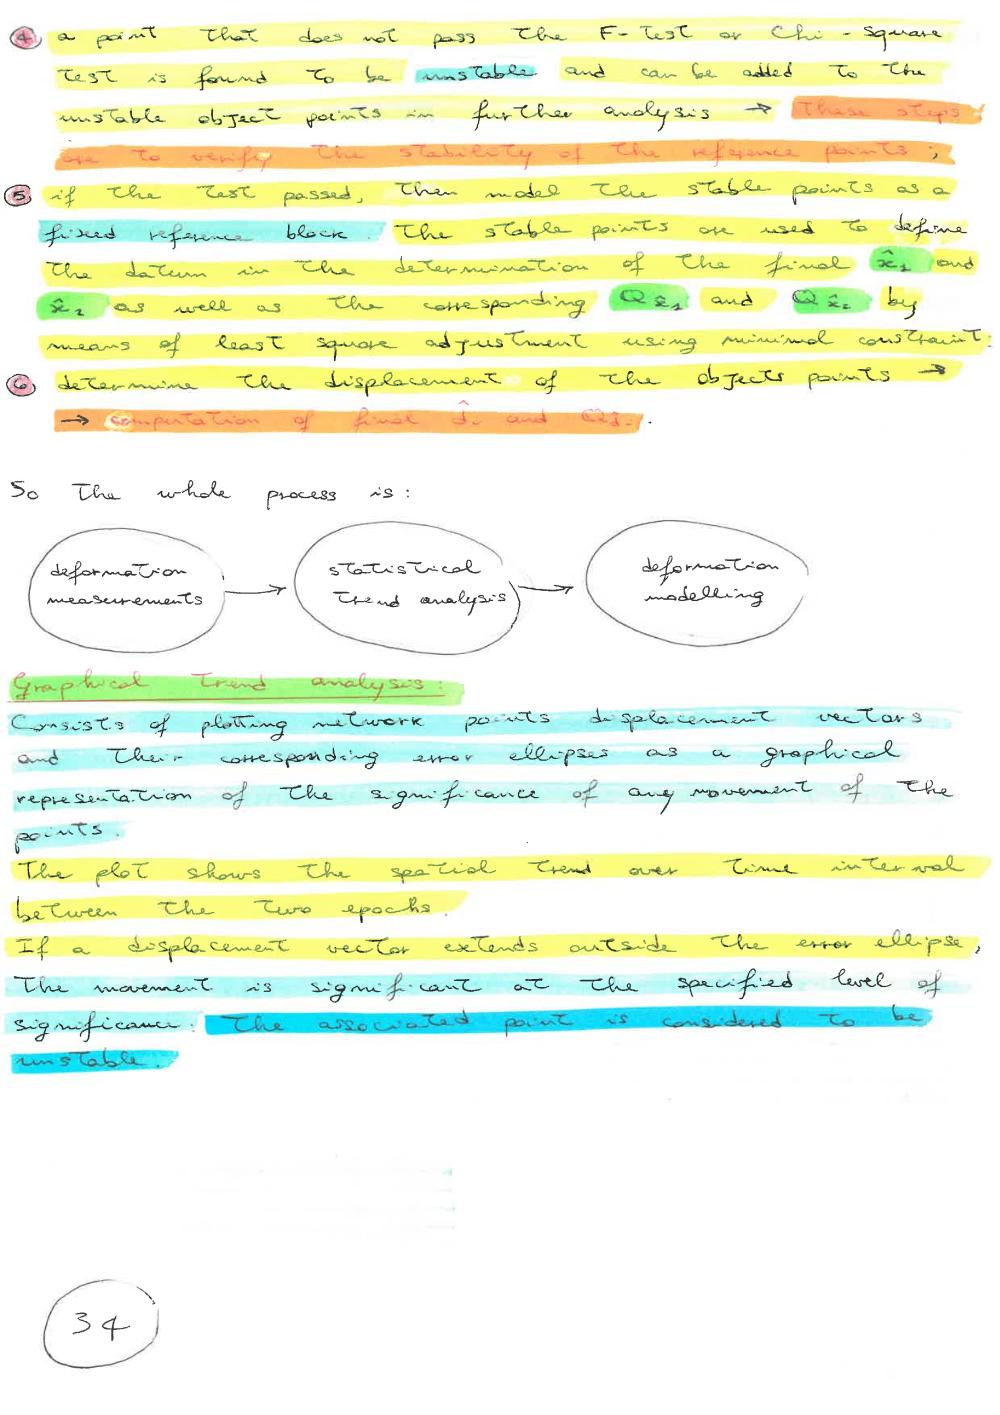 ④ a point that does not pass the F-Test or Chi-square
test is found to be unstable and can be added to the
unstable object points in further analysis → These steps
are to verify the stability of the reference points;
⑤ if the test passed, then model the stable points as a
fixed reference block. The stable points are used to define
the datum in the determination of the final x̂₁ and
x̂₂ as well as the corresponding Qx̂₁ and Qx̂₂ by
means of least square adjustment using minimal constraint;
⑥ determine the displacement of the objects points →
→ computation of final d̂ᵢ and Qd̂ᵢ.
So the whole process is:
deformation
measurements
statistical
trend analysis
deformation
modelling
Graphical trend analysis:
Consists of plotting network points displacement vectors
and their corresponding error ellipses as a graphical
representation of the significance of any movement of the
points.
The plot shows the spatial trend over time interval
between the two epochs.
If a displacement vector extends outside the error ellipse,
the movement is significant at the specified level of
significance. The associated point is considered to be
unstable.
34